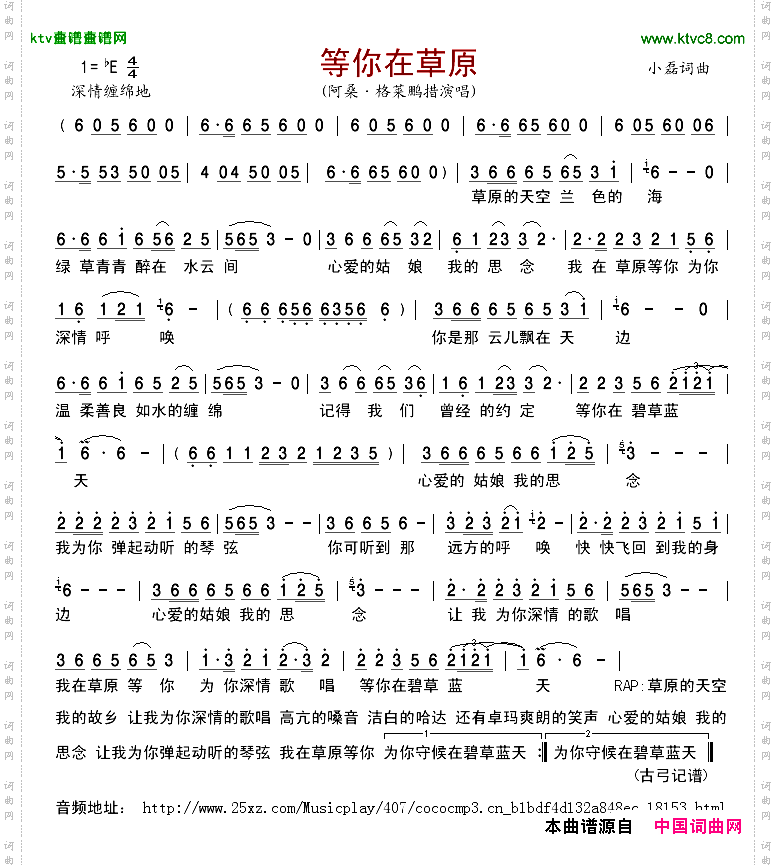 ktv曲谱曲谱网
www.ktvc8.com
1=♭E 4/4
等你在草原
小磊词曲
深情缠绵地
(阿桑·格莱鹏措演唱)
( 6 0 5 6 0 0 | 6·6 6 5 6 0 0 | 6 0 5 6 0 0 | 6·6 65 60 0 | 6 05 60 06 |
5·5 53 50 05 | 4 04 50 05 | 6·6 65 60 0 ) | 3 6 6 6 5 65 3 1 | 6 - - 0 |
草原的天空 兰 色的 海
6·6 6 1 6 56 2 5 | 565 3 - 0 | 3 6 6 65 32 | 6 1 23 3 2· | 2·2 23 2 1 5 6 |
绿 草青青 醉在 水云 间 心爱的姑 娘 我的 思 念 我 在 草原等你 为你
1 6 1 2 1 6 - | ( 6 6 656 6356 6 ) | 3 6 6 6 5 6 5 3 1 | 6 - - 0 |
深情 呼 唤 你是那 云儿飘在 天 边
6·6 6 1 6 5 2 5 | 565 3 - 0 | 3 6 6 65 36 | 1 6 1 23 3 2· | 2 2 3 5 6 2121 |
温 柔善良 如水的缠 绵 记得 我 们 曾经 的约 定 等你在 碧草蓝
1 6· 6 - | ( 6 6 1 1 1 2 3 2 1 2 3 5 ) | 3 6 6 6 5 6 6 1 2 5 | 3 - - - |
天 心爱的 姑娘 我的思 念
2 2 2 2 3 2 1 5 6 | 565 3 - - | 3 6 6 5 6 - | 3 2 2 3 21 2 - | 2·2 2 3 2 1 5 1 |
我为你 弹起动听 的琴 弦 你可听到 那 远方的呼 唤 快 快飞回 到我的身
6 - - - | 3 6 6 6 5 6 6 1 2 5 | 3 - - - | 2·2 2 3 2 1 5 6 | 565 3 - - |
边 心爱的姑娘 我的 思 念 让 我 为你深情 的歌 唱
3 6 6 5 6 5 3 | 1·3 2 1 2·3 2 | 2 2 3 5 6 2121 | 1 6· 6 - |
我在草原 等 你 为 你深情 歌 唱 等你在碧草 蓝 天 RAP:草原的天空
我的故乡 让我为你深情的歌唱 高亢的嗓音 洁白的哈达 还有卓玛爽朗的笑声 心爱的姑娘 我的
思念 让我为你弹起动听的琴弦 我在草原等你 为你守候在碧草蓝天 :‖ 为你守候在碧草蓝天 ‖
(古弓记谱)
音频地址: http://www.25xz.com/Musicplay/407/cococmp3.cn_b1bdf4d132a848ec_18153.html
本曲谱源自 中国词曲网